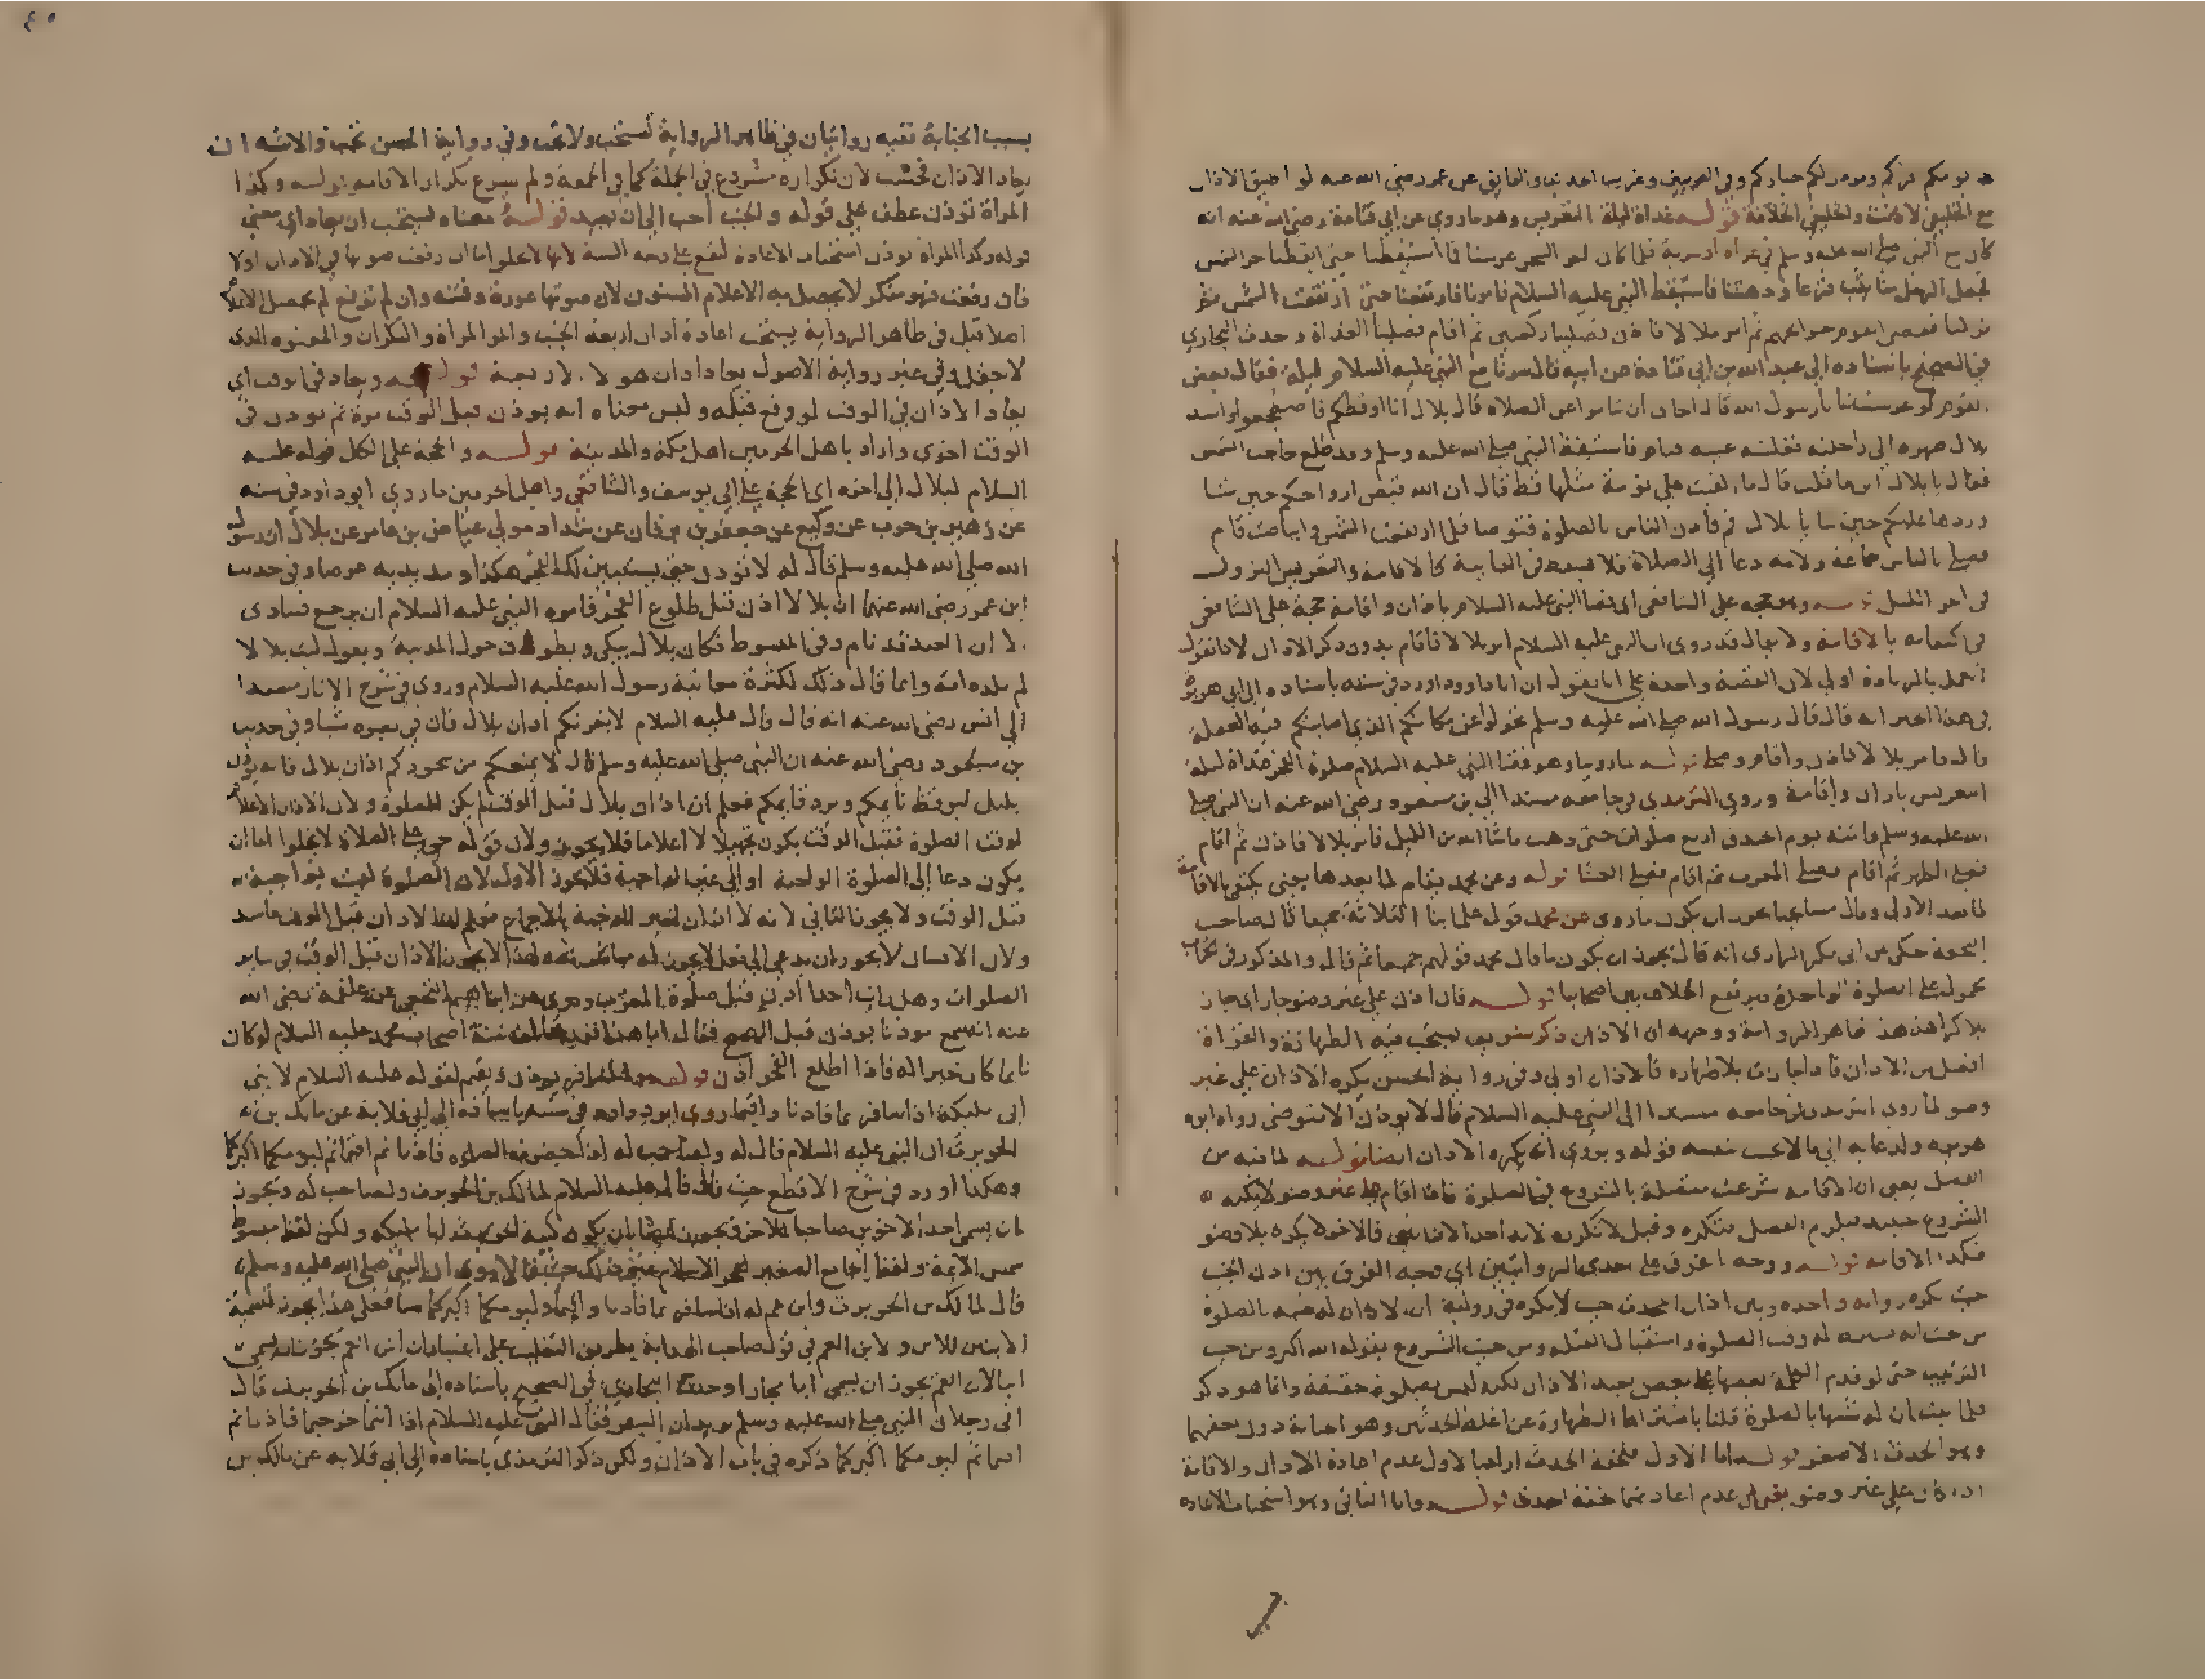 يومكم قراكم ويوذن لكم خياركم وفي الغريبين وغريب الحديث والفايق عن عمر رضي الله عنه لو اطيق الاذان
مع الخليفي لاذنت والخليفي الخلافة قوله غداة ليلة التعريس وهو ما روي عن ابي قتادة رضي الله عنه انه
كان مع النبي صلى الله عليه وسلم في غزاة او سرية فلما كان السحر عرسنا فما استيقظنا حتى ايقظنا حر الشمس
فجعل الرجل منا يثب فزعا دهشا فاستيقظ النبي عليه السلام فامرنا فارتفعنا حتى ارتفعت الشمس ثم
نزلنا فقضى القوم حوائجهم ثم امر بلالا فاذن فصلينا ركعتين ثم اقام فصلينا الغداة وحدث البخاري
في الصحيح باسناده الى عبد الله بن ابي قتادة عن ابيه قال سرنا مع النبي عليه السلام ليلة فقال بعض
القوم لو عرست بنا يا رسول الله قال اخاف ان تناموا عن الصلاة قال بلال انا اوقظكم فاضطجعوا واسند
بلال ظهره الى راحلته فغلبته عينه فنام فاستيقظ النبي صلى الله عليه وسلم وقد طلع حاجب الشمس
فقال يا بلال اين ما قلت قال ما القيت علي نومة مثلها قط قال ان الله قبض ارواحكم حين شا
وردها عليكم حين شا يا بلال قم فاذن الناس بالصلوة فتوضا فلما ارتفعت الشمس وابياضت قام
فصلى بالناس جماعة ولانه دعا الى الصلاة فلا يسقط في الفايتة كالاقامة والتعريس النزول
في اخر الليل قوله وهو حجة على الشافعي اي قضا النبي عليه السلام باذان واقامة حجة على الشافعي
في اكتفائه بالاقامة ولا يقال قد روي ان النبي عليه السلام امر بلالا فاقام بدون ذكر الاذان لانا نقول
العمل بالزيادة اولى لان القصة واحدة على انا نقول ان ابا داود اورد في سننه باسناده الى ابي هريرة
في هذا الخبر انه قال قال رسول الله صلى الله عليه وسلم تحولوا عن مكانكم الذي اصابتكم فيه الغفلة
قال فامر بلالا فاذن واقام وصلى قوله ما روينا وهو قضا النبي عليه السلام صلوة الفجر غداة ليلة
التعريس باذان واقامة وروى الترمذي في جامعه مسندا الى بن مسعود رضي الله عنه ان النبي صلى
الله عليه وسلم فاتته يوم الخندق اربع صلوات حتى ذهب ما شا الله من الليل فامر بلالا فاذن ثم اقام
فصلى الظهر ثم اقام فصلى المغرب ثم اقام فصلى العشا قوله وعن محمد يقام لما بعدها يعني يكتفي بالاقامة
لما بعد الاولى وقال مشايخنا يجوز ان يكون ما روي عن محمد قول علمائنا الثلاثة جميعا قال صاحب
التحفة حكى عن ابي بكر الرازي انه قال يجوز ان يكون ما قال محمد قولهم جميعا ثم قال والمذكور في الكتاب
محمول على الصلوة الواحدة فيرتفع الخلاف بين اصحابنا قوله فان اذن على غير وضو جاز اي جاز
بلا كراهة هذا ظاهر الرواية ووجهه ان الاذان ذكر شريف يستحب فيه الطهارة والقراة
افضل من الاذان فاذا جازت بلا طهارة فالاذان اولى وفي رواية الحسن يكره الاذان على غير
وضو لما روى الترمذي في جامعه مسندا الى النبي عليه السلام قال لا يوذن الا متوضي رواه ابو
هريرة ولدعائه الى ما لا يجيب بنفسه قوله ويروى انه يكره الاذان ايضا قوله لما فيه من
الفصل يعني ان الاقامة شرعت متصلة بالشروع في الصلوة فاذا اقام على غير وضو لا يمكنه
الشروع حينئذ فيلزم الفصل فتكره وقيل لا تكره لانه احد الاذانين فالاخر لا يكره بلا وضو
فكذا الاقامة قوله ووجه الفرق على احدى الروايتين اي وجه الفرق بين اذان الجنب
حيث يكره رواية واحدة وبين اذان المحدث حيث لا يكره في رواية ان الاذان له شبه بالصلوة
من حيث انه يشترط له وقت الصلوة واستقبال القبلة ومن حيث الشروع بقوله الله اكبر ومن حيث
الترتيب حتى لو قدم الكلمة بعضها على بعض يعيد الاذان لكنه ليس بصلوة حقيقة وانما هو ذكر
فلما ثبت ان له شبها بالصلوة قلنا باشتراط الطهارة عن اغلظ الحدثين وهو الجنابة دون اخفهما
وهو الحدث الاصغر قوله اما الاول فلخفة الحدث اراد بالاول عدم اعادة الاذان والاقامة
اذا كان على غير وضو يعني ان عدم اعادتهما لخفة الحدث قوله واما الثاني وهو استحباب الاعادة
بسبب الجنابة ففيه روايتان في ظاهر الرواية تستحب ولا تجب وفي رواية الحسن تجب والاشبه ان
يعاد الاذان فحسب لان تكراره مشروع في الجملة كما في الجمعة ولم يشرع تكرار الاقامة قوله وكذا
المراة توذن عطف على قوله والجنب احب الي ان يعيد قوله معناه يستحب ان يعاد اي معنى
قوله وكذا المراة توذن استحباب الاعادة ليقع على وجه السنة لانها لا تخلو اما ان رفعت صوتها في الاذان اولا
فان رفعت فهو منكر لا يحصل به الاعلام المسنون لان صوتها عورة وفتنة وان لم ترفع لم يحصل الاعلام
اصلا قيل في ظاهر الرواية يستحب اعادة اذان اربعة الجنب والمراة والسكران والمعتوه الذي
لا يعقل وفي غير رواية الاصول يعاد اذان هولاء الاربعة قوله ويعاد في الوقت اي
يعاد الاذان في الوقت لو وقع قبله وليس معناه انه يوذن قبل الوقت مرة ثم يوذن في
الوقت اخرى واراد باهل الحرمين اهل مكة والمدينة قوله والحجة على الكل قوله عليه
السلام لبلال الى اخره اي الحجة على ابي يوسف والشافعي واهل الحرمين ما روى ابو داود في سننه
عن زهير بن حرب عن وكيع عن جعفر بن برقان عن شداد مولى عياض بن عامر عن بلال ان رسول
الله صلى الله عليه وسلم قال له لا توذن حتى يستبين لك الفجر هكذا ومد يديه عرضا وفي حديث
ابن عمر رضي الله عنهما ان بلالا اذن قبل طلوع الفجر فامره النبي عليه السلام ان يرجع فينادي
الا ان العبد قد نام وفي المبسوط فكان بلال يبكي ويطوف حول المدينة ويقول ليت بلالا
لم تلده امه وانما قال ذلك لكثرة معاتبة رسول الله عليه السلام وروي في شرح الاثار مسندا
الى انس رضي الله عنه انه قال قال عليه السلام لا يغرنكم اذان بلال فان في بصره شيا وفي حديث
بن مسعود رضي الله عنه ان النبي صلى الله عليه وسلم قال لا يمنعكم من سحوركم اذان بلال فانه يوذن
بليل ليوقظ نايمكم ويرد قايمكم فعلم ان اذان بلال قبل الوقت لم يكن للصلوة ولان الاذان الاعلام
لوقت الصلوة فقبل الوقت يكون تجهيلا لا اعلاما فلا يجوز ولان قوله حي على الصلاة لا يخلوا اما ان
يكون دعا الى الصلوة الواجبة او الى غير الواجبة فلا يجوز الاول لان الصلوة ليست بواجبة
قبل الوقت ولا يجوز الثاني لانه لا اذان لغير المكتوبة بالاجماع فعلم ان الاذان قبل الوقت فاسد
ولان الانسان لا يجوز ان يدعى الى فعل لا يجوز له مباشرته لهذا لا يجوز الاذان قبل الوقت في ساير
الصلوات وهل رايت احدا اذن قبل صلوة المغرب وروي عن ابراهيم النخعي عن علقمة رضي الله
عنه انه سمع موذنا يوذن قبل الصبح فقال اما هذا فقد خالف سنة اصحاب محمد عليه السلام لو كان
نايما كان خيرا له فاذا طلع الفجر اذن قوله والمسافر يوذن ويقيم لقوله عليه السلام لابني
ابي مليكة اذا سافرتما فاذنا واقيما روى ابو داود في سننه باسناده الى ابي قلابة عن مالك بن
الحويرث ان النبي عليه السلام قال له ولصاحب له اذا حضرت الصلوة فاذنا ثم اقيما ثم ليومكما اكبركما
وهكذا اورد في شرح الاقطع حيث قال قال عليه السلام لمالك بن الحويرث ولصاحب له ويجوز
ان يسمى احد الاخوين صاحبا للاخر فيجوز ايضا ان يكون كنية ابي مليكة ولكن لفظ مبسوط
شمس الايمة ولفظ الجامع الصغير لفخر الاسلام غير ذلك حيث قالا روي ان النبي صلى الله عليه وسلم
قال لمالك بن الحويرث وابن عم له اذا سافرتما فاذنا واقيما وليومكما اكبركما سنا فعلى هذا يجوز تسمية
الابنين للاب ولابن العم في قول صاحب الهداية بطريق التغليب على اعتبار ان ابن العم يجوز ان يسمى
ابنا لان العم يجوز ان يسمى ابا مجازا وحدث البخاري في الصحيح باسناده الى مالك بن الحويرث قال
اتى رجلان النبي صلى الله عليه وسلم يريدان السفر فقال النبي عليه السلام اذا انتما خرجتما فاذنا ثم
اقيما ثم ليومكما اكبركما ذكره في باب الاذان ولكن ذكر الترمذي باسناده الى ابي قلابة عن مالك بن